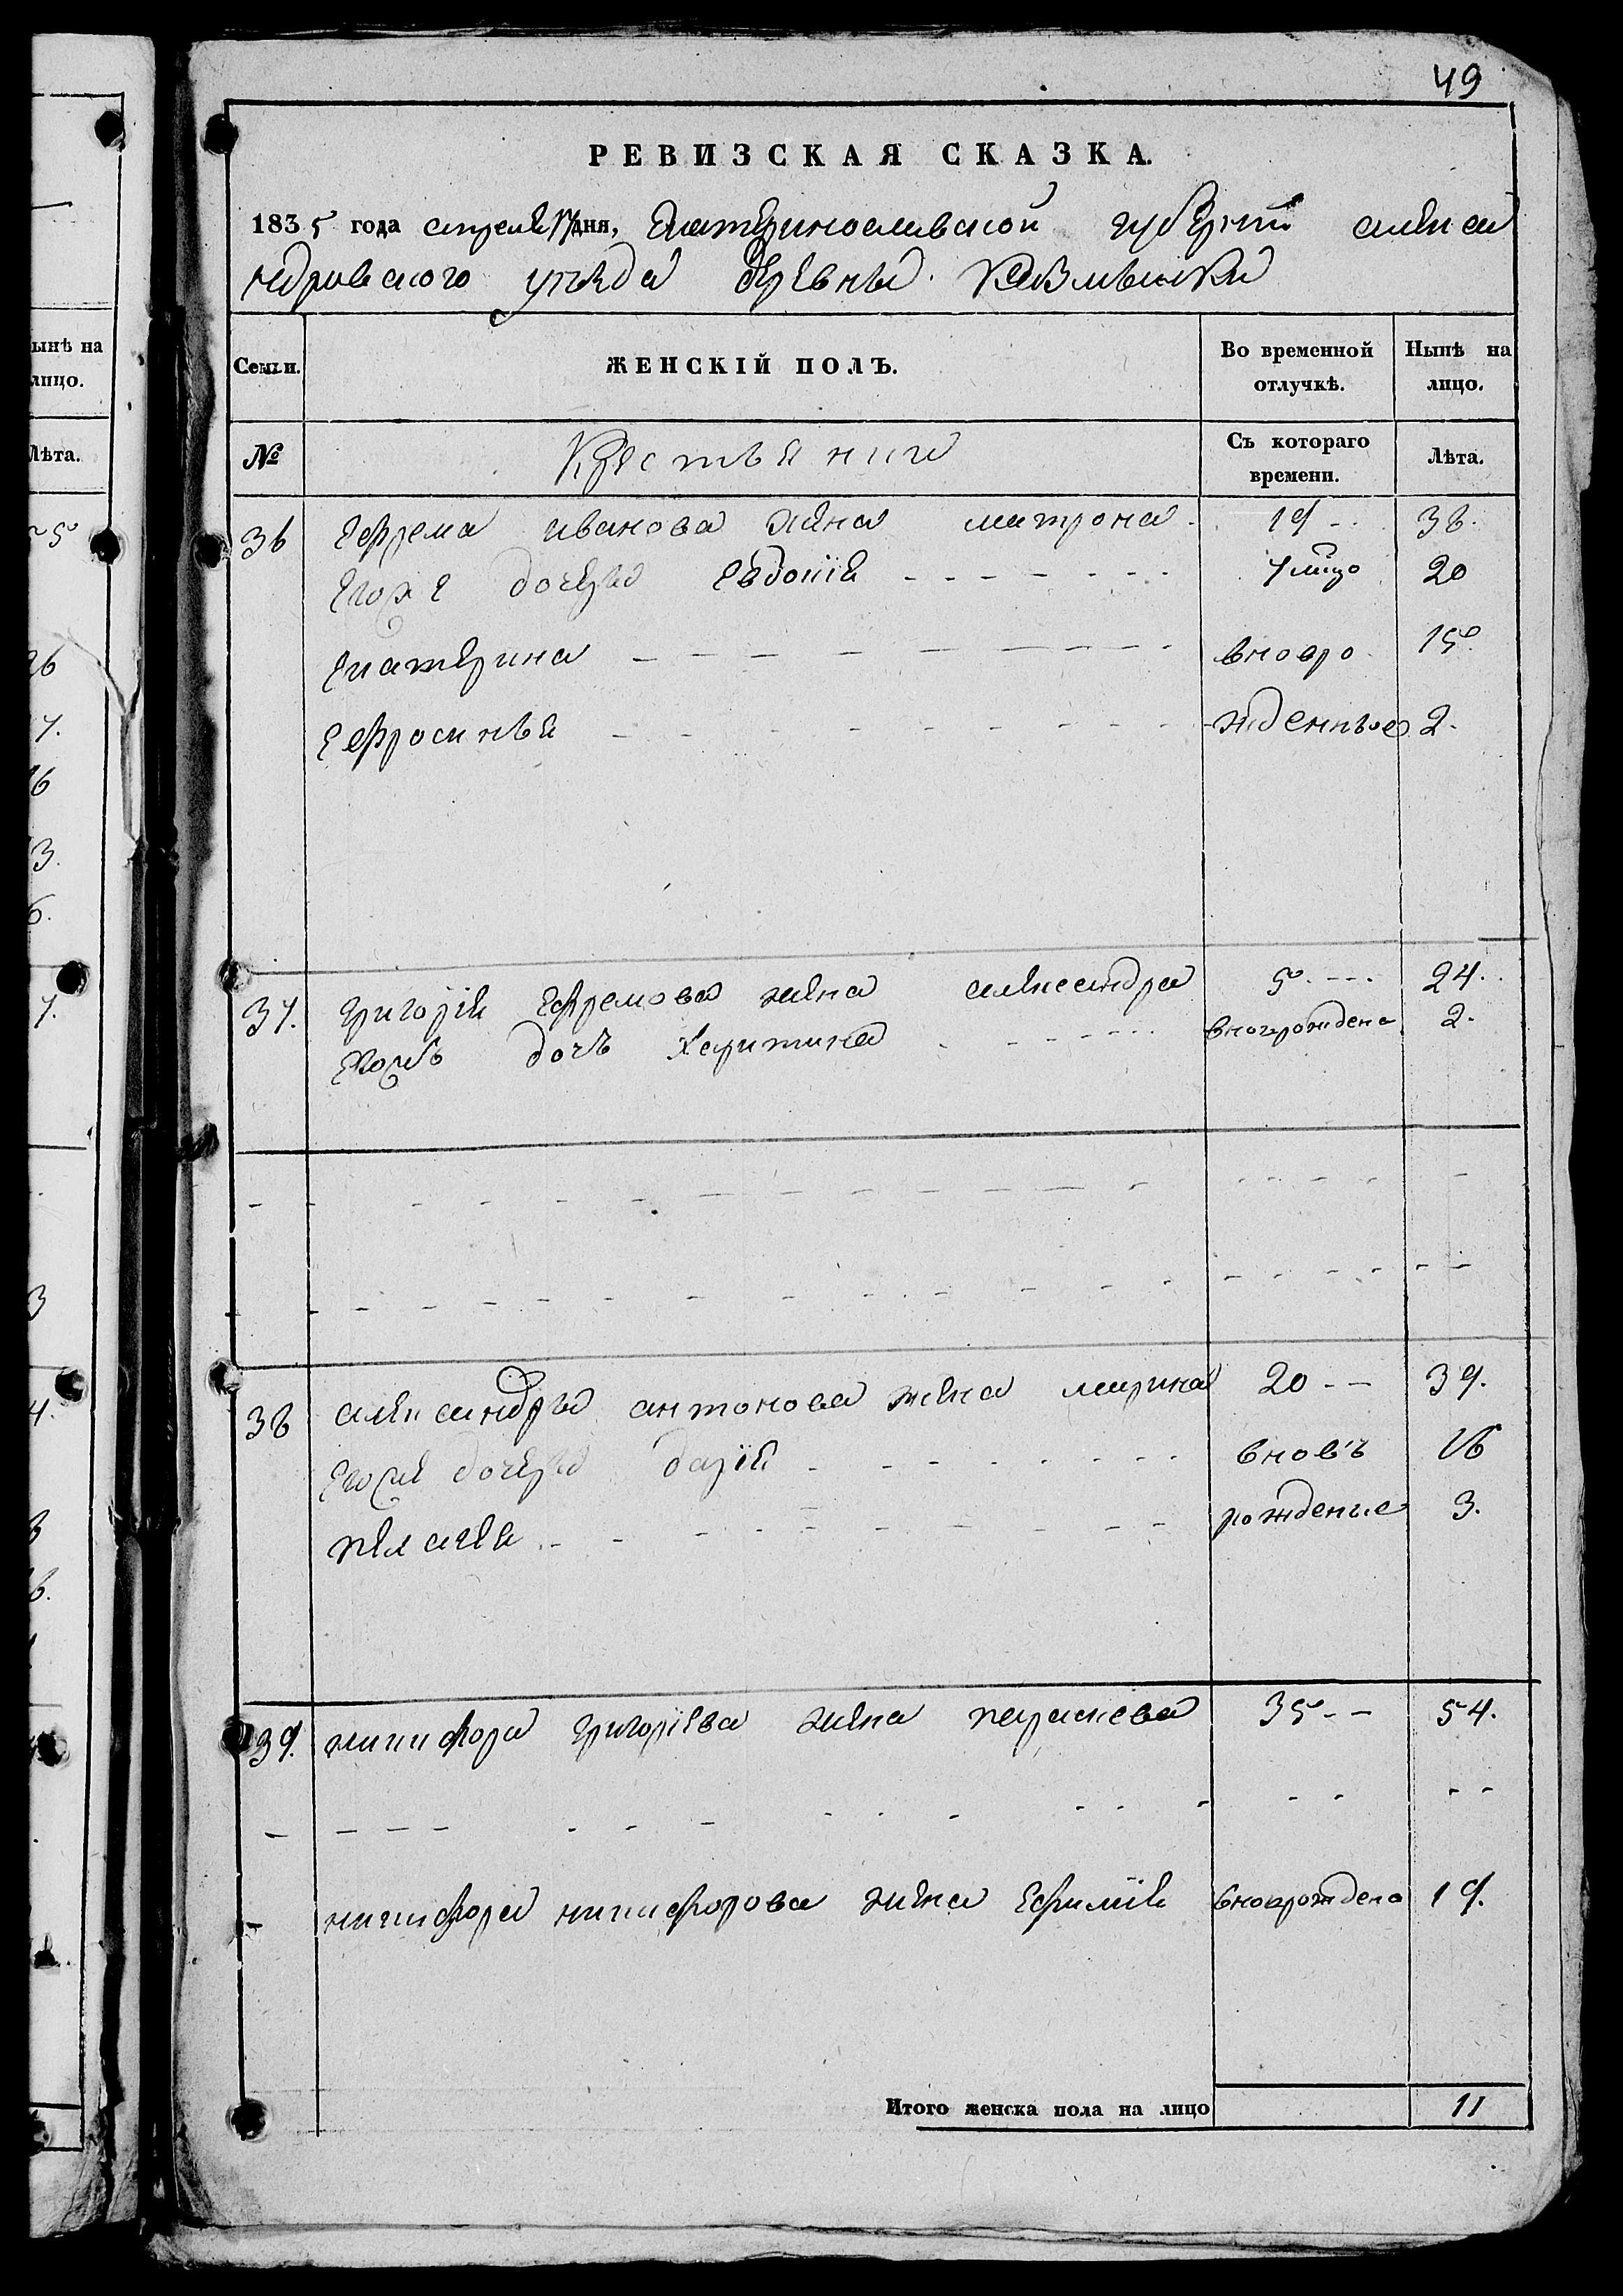 49
РЕВИЗСКАЯ СКАЗКА.
1835 года апреля 17 дня, Екатеринославской губернии алекса
ндровского уезда деревни
Семьи. ЖЕНСКІЙ ПОЛЪ. Во временной отлучкѣ. Нынѣ на лицо.
№ Крестьянин Съ котораго времени. Лѣта.
36 Ефрема иванова жена матрона 19 -- 38.
Егоже дочери Евдокія - - - - - - - 20
Екатерина - - - - - - - - вновро 15.
Ефросинья - - - - - - - - жденные 2.
37. Григорія Ефремова жена александра 5 --- 24.
Егожъ дочь Харитина - - - - вноврождена 2.
38 александра антонова жена марина 20 -- 39.
Егоже дочери дарія - - - - - - - вновъ 16
пелагея - - - - - - - - рожденые 3.
39. никифора Григоріева жена параскева 35 -- 54.
- никифора никифорова жена Ефимія вноврождена 19.
Итого женска пола на лицо 11
ынѣ на
лицо.
Лѣта.